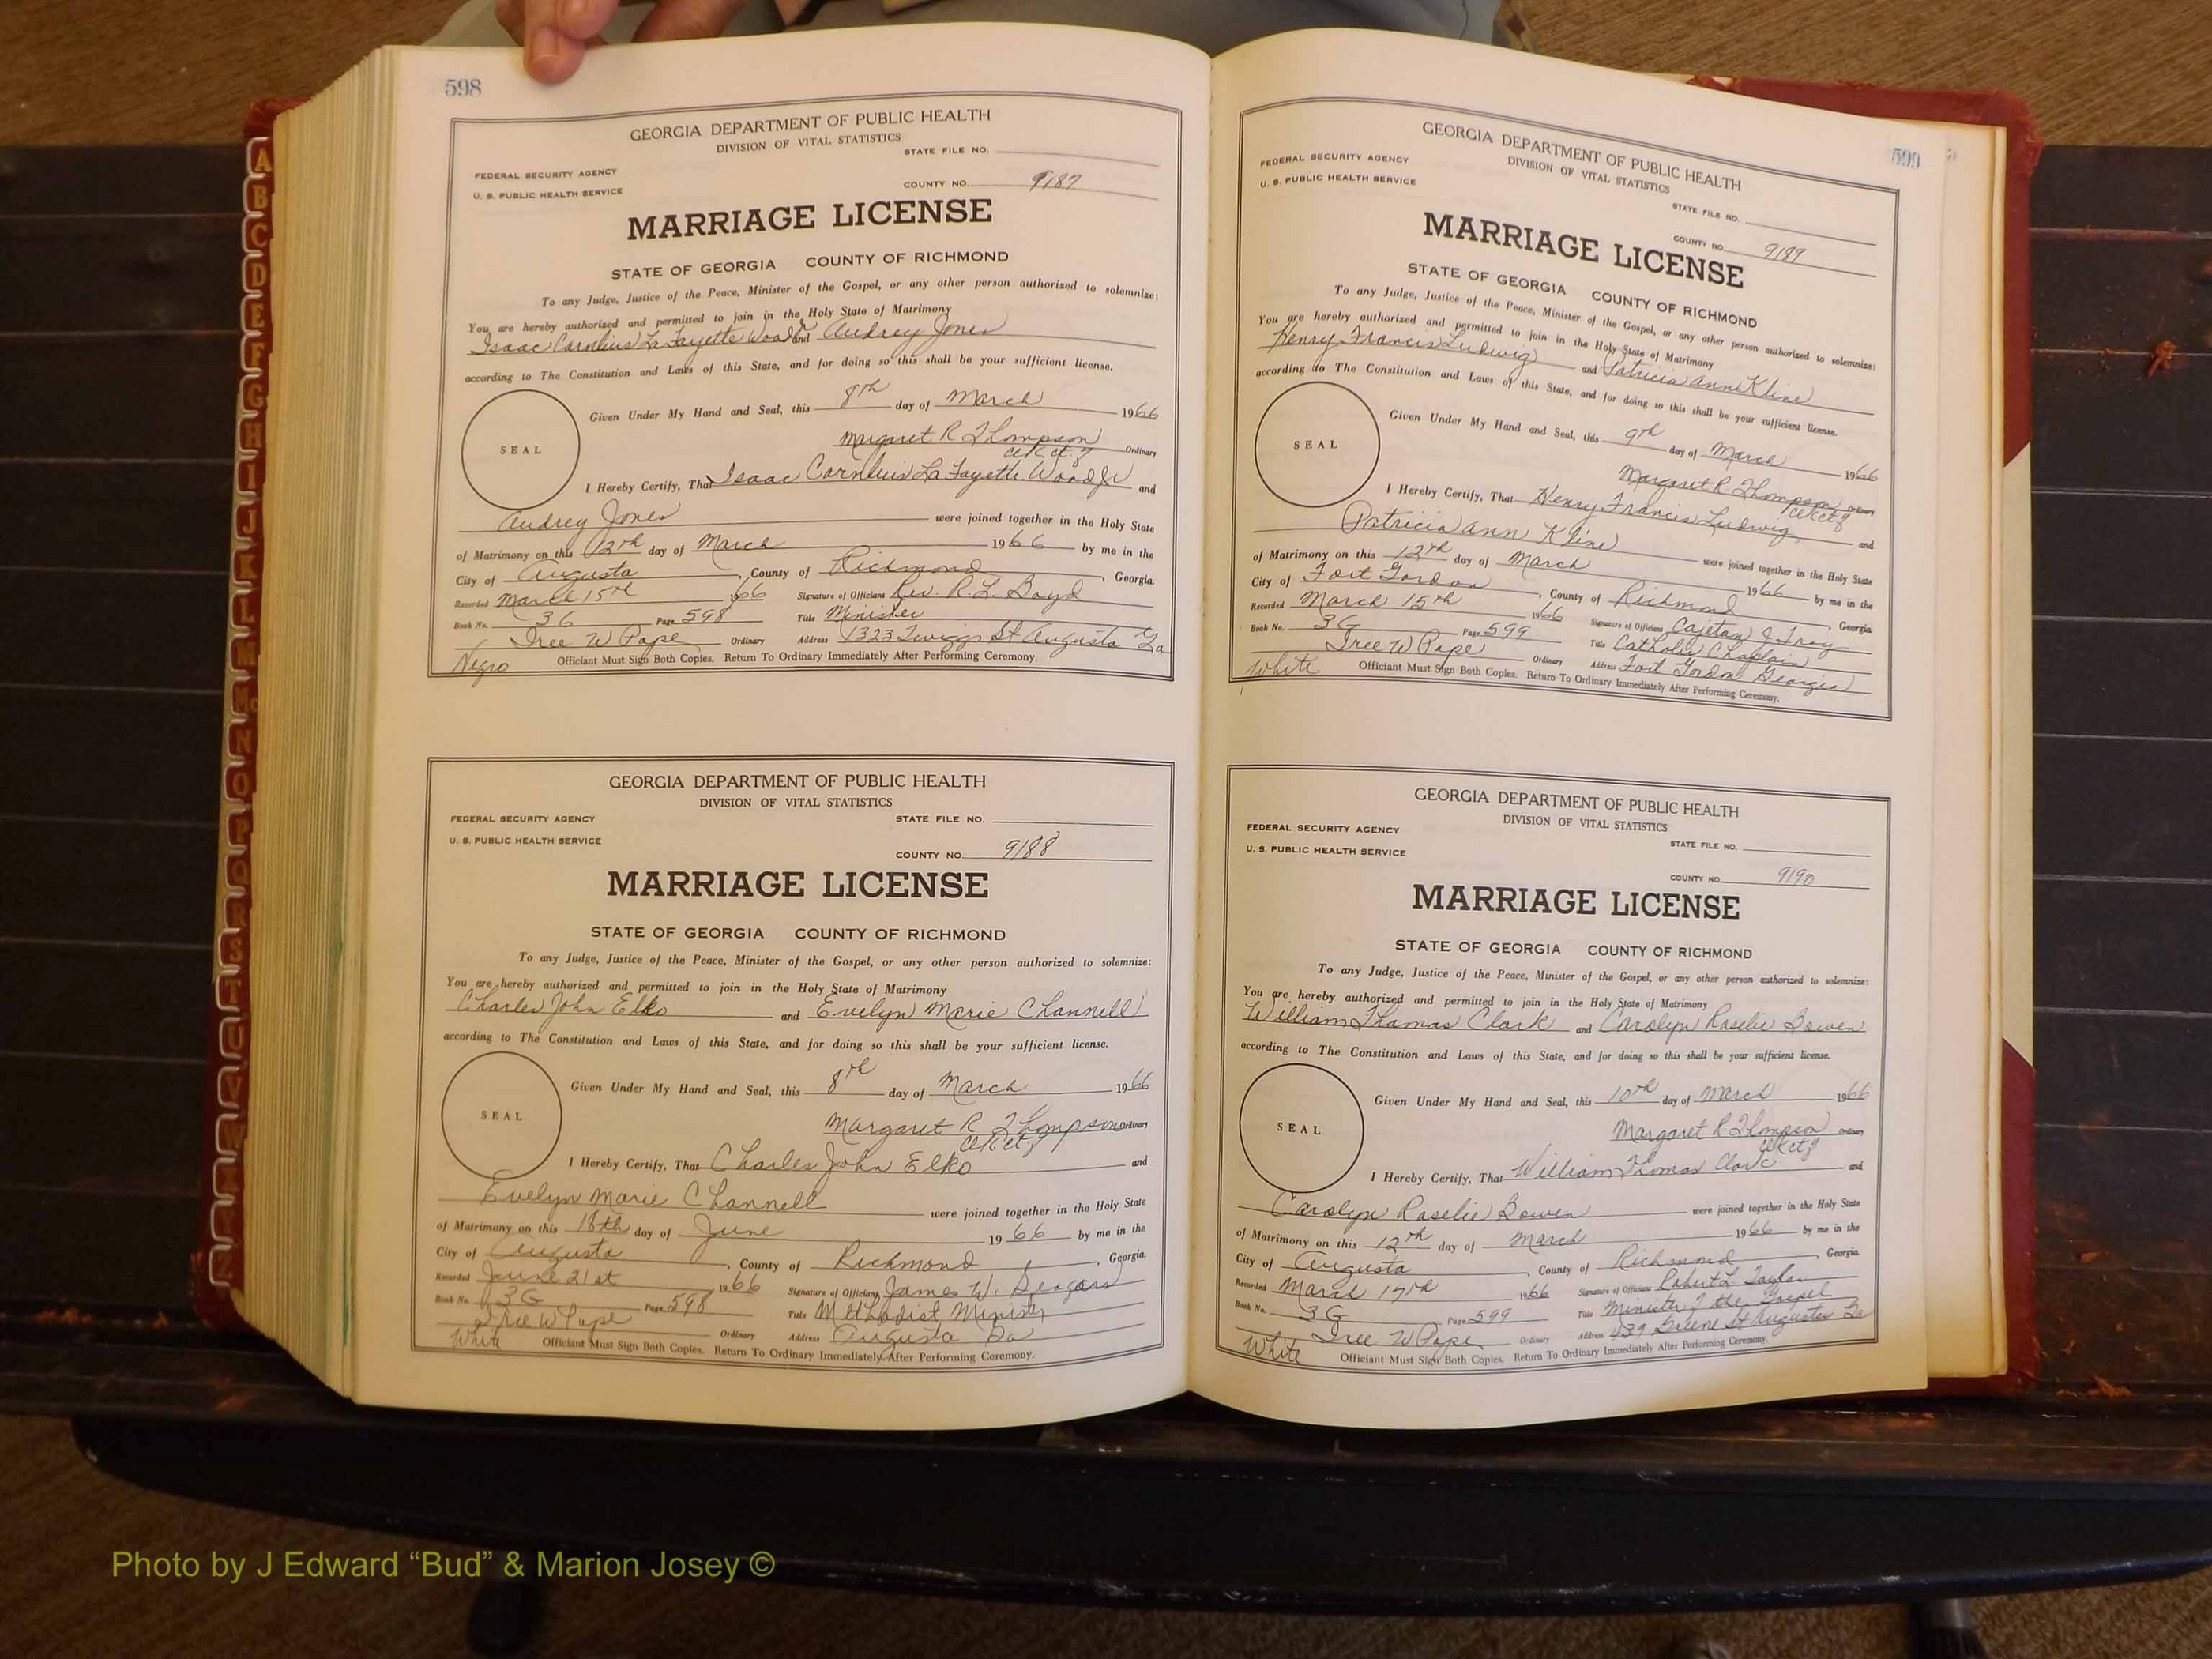 598
GEORGIA DEPARTMENT OF PUBLIC HEALTH
DIVISION OF VITAL STATISTICS
STATE FILE NO.
FEDERAL SECURITY AGENCY
U. S. PUBLIC HEALTH SERVICE
COUNTY NO. 9187
MARRIAGE LICENSE
STATE OF GEORGIA COUNTY OF RICHMOND
To any Judge, Justice of the Peace, Minister of the Gospel, or any other person authorized to solemnize:
You are hereby authorized and permitted to join in the Holy State of Matrimony
Isaac Cornlius La Fayette Wood Jr and Audrey Jones
according to The Constitution and Laws of this State, and for doing so this shall be your sufficient license.
Given Under My Hand and Seal, this 8th day of March 1966
SEAL
Margaret R Thompson Ordinary
I Hereby Certify, That Isaac Cornluis La Fayette Wood Jr and
Audrey Jones were joined together in the Holy State
of Matrimony on this 12th day of March 1966 by me in the
City of Augusta, County of Richmond, Georgia.
Recorded March 15th 1966 Signature of Officiant Rev. R. L. Boyd
Book No. 3G Page 598 Title Minister
Iree W Pope Ordinary Address 1323 Twiggs St Augusta Ga
Negro Officiant Must Sign Both Copies. Return To Ordinary Immediately After Performing Ceremony.
GEORGIA DEPARTMENT OF PUBLIC HEALTH
DIVISION OF VITAL STATISTICS
STATE FILE NO.
FEDERAL SECURITY AGENCY
U. S. PUBLIC HEALTH SERVICE
COUNTY NO. 9188
MARRIAGE LICENSE
STATE OF GEORGIA COUNTY OF RICHMOND
To any Judge, Justice of the Peace, Minister of the Gospel, or any other person authorized to solemnize:
You are hereby authorized and permitted to join in the Holy State of Matrimony
Charles John Elko and Evelyn Marie Channell
according to The Constitution and Laws of this State, and for doing so this shall be your sufficient license.
Given Under My Hand and Seal, this 8th day of March 1966
SEAL
Margaret R Thompson Ordinary
I Hereby Certify, That Charles John Elko and
Evelyn Marie Channell were joined together in the Holy State
of Matrimony on this 18th day of June 1966 by me in the
City of Augusta, County of Richmond, Georgia.
Recorded June 21st 1966 Signature of Officiant James W. Seagars
Book No. 3G Page 598 Title Methodist Minister
Iree W Pope Ordinary Address Augusta Ga
White Officiant Must Sign Both Copies. Return To Ordinary Immediately After Performing Ceremony.
599
GEORGIA DEPARTMENT OF PUBLIC HEALTH
DIVISION OF VITAL STATISTICS
FEDERAL SECURITY AGENCY
U. S. PUBLIC HEALTH SERVICE
STATE FILE NO.
COUNTY NO. 9189
MARRIAGE LICENSE
STATE OF GEORGIA COUNTY OF RICHMOND
To any Judge, Justice of the Peace, Minister of the Gospel, or any other person authorized to solemnize:
You are hereby authorized and permitted to join in the Holy State of Matrimony
Henry Francis Ludwig and Patricia Ann Kline
according to The Constitution and Laws of this State, and for doing so this shall be your sufficient license.
Given Under My Hand and Seal, this 9th day of March 1966
SEAL
Margaret R Thompson Ordinary
I Hereby Certify, That Henry Francis Ludwig and
Patricia Ann Kline were joined together in the Holy State
of Matrimony on this 12th day of March 1966 by me in the
City of Fort Gordon, County of Richmond, Georgia
Recorded March 15th 1966 Signature of Officiant Cajetan J Troy
Book No. 3G Page 599 Title Catholic Chaplain
Iree W Pope Ordinary Address Fort Gordon Georgia
White Officiant Must Sign Both Copies. Return To Ordinary Immediately After Performing Ceremony.
GEORGIA DEPARTMENT OF PUBLIC HEALTH
DIVISION OF VITAL STATISTICS
FEDERAL SECURITY AGENCY
U. S. PUBLIC HEALTH SERVICE
STATE FILE NO.
COUNTY NO. 9190
MARRIAGE LICENSE
STATE OF GEORGIA COUNTY OF RICHMOND
To any Judge, Justice of the Peace, Minister of the Gospel, or any other person authorized to solemnize:
You are hereby authorized and permitted to join in the Holy State of Matrimony
William Thomas Clark and Carolyn Roselie Bowen
according to The Constitution and Laws of this State, and for doing so this shall be your sufficient license.
Given Under My Hand and Seal, this 10th day of March 1966
SEAL
Margaret R. Thompson Ordinary
I Hereby Certify, That William Thomas Clark and
Carolyn Roselie Bowen were joined together in the Holy State
of Matrimony on this 12th day of March 1966 by me in the
City of Augusta, County of Richmond, Georgia
Recorded March 17th 1966 Signature of Officiant Robert L Taylor
Book No. 3G Page 599 Title Minister of the Gospel
Iree W Pope Ordinary Address 439 Greene St Augusta Ga
White Officiant Must Sign Both Copies. Return To Ordinary Immediately After Performing Ceremony.
Photo by J Edward “Bud” & Marion Josey ©